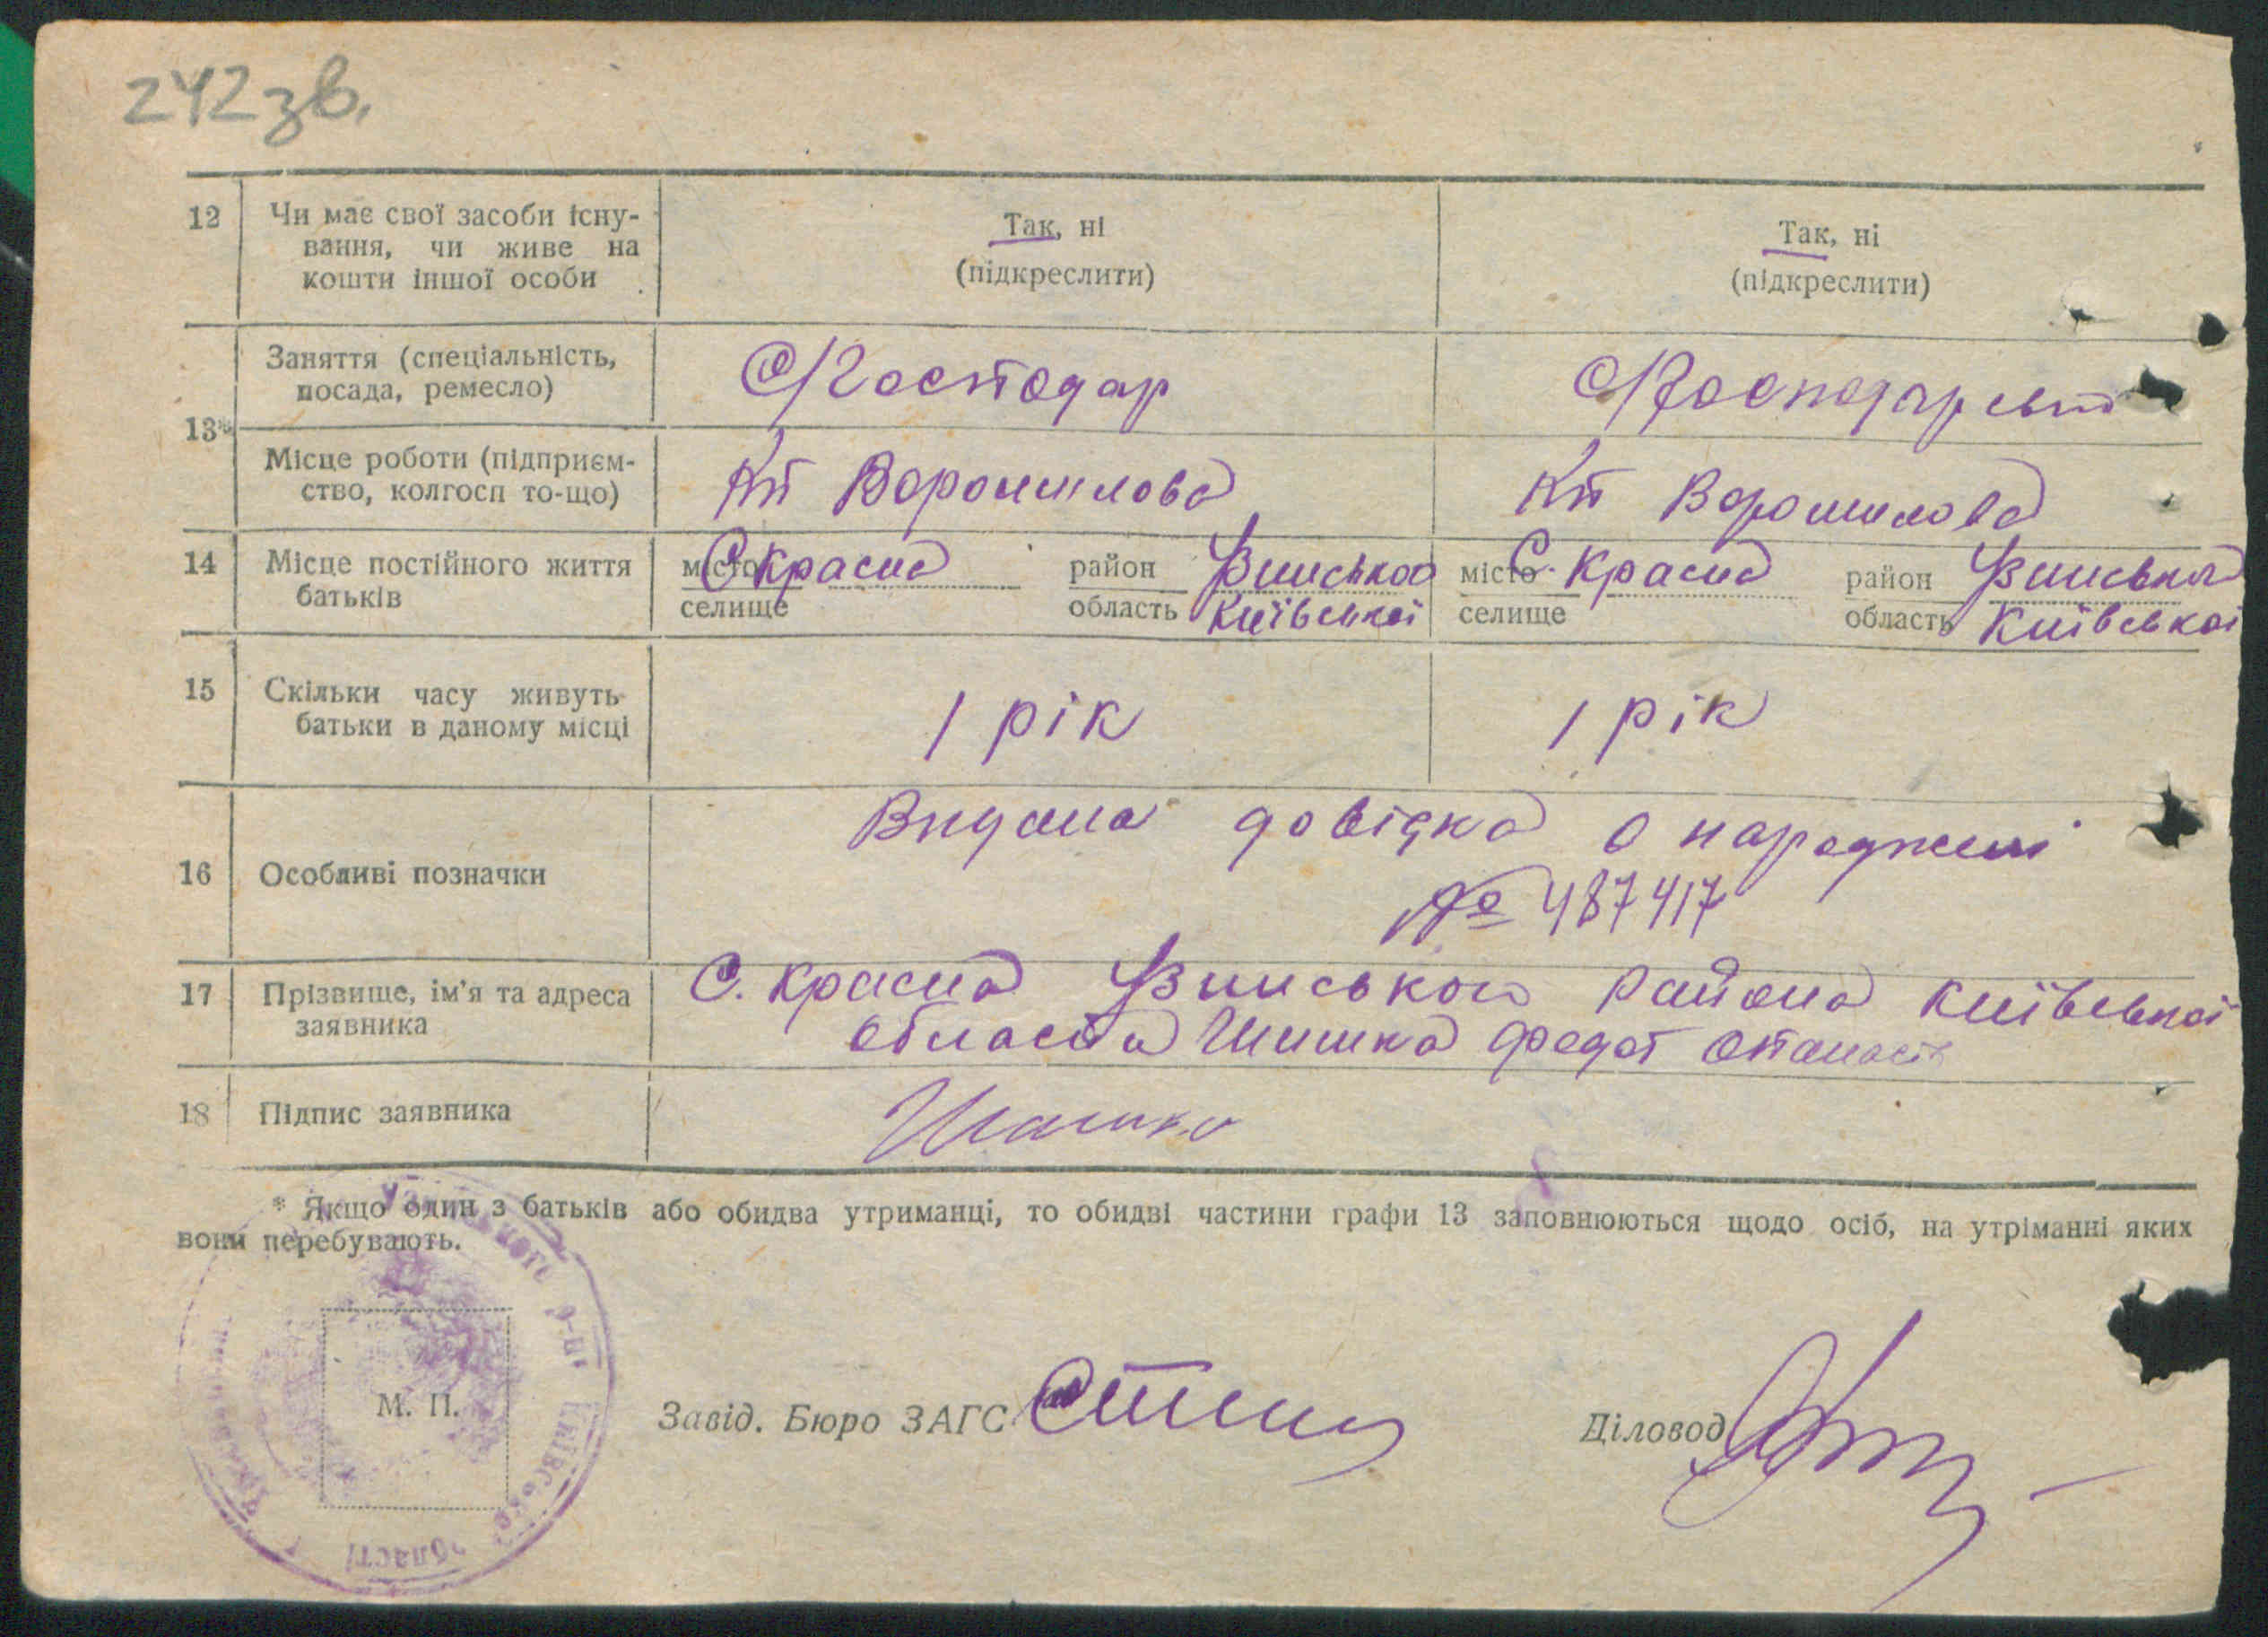 242зв.
12 Чи має свої засоби існу-
вання, чи живе на
кошти іншої особи
Так, ні
(підкреслити)
Так, ні
(підкреслити)
13* Заняття (спеціальність,
посада, ремесло)
Господар
Місце роботи (підприєм-
ство, колгосп то-що)
Кт Ворошилова
Кт Ворошилова
14 Місце постійного життя
батьків
місто С. Красна район
селище область Київської
місто С. Красна район
селище область Київської
15 Скільки часу живуть
батьки в даному місці
1 рік
1 рік
16 Особливі позначки
Видана довідка о народжені
№ 487417
17 Прізвище, ім'я та адреса
заявника
С. Красна района Київської
Шишка Федот
18 Підпис заявника
* Якщо один з батьків або обидва утриманці, то обидві частини графи 13 заповнюються щодо осіб, на утріманні яких
вони перебувають.
М. П.
Завід. Бюро ЗАГС
Діловод
області